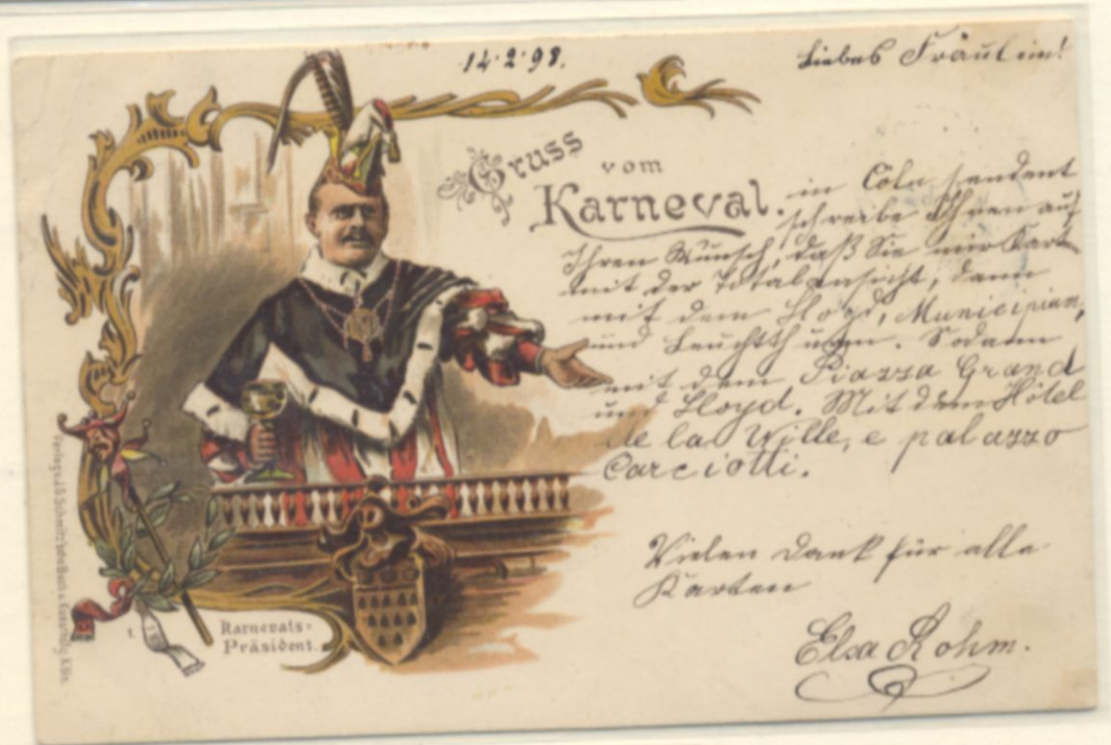 14·2·98.
Liebes Fräulein!
Gruss
vom
Karneval.
in Cöln sendend
schreibe Ihnen auf
Ihren Wunsch, daß Sie mir Karte
mit der Totalansicht, dann
mit dem Lloyd, Municipium,
und Leuchtthurm. Sodann
mit dem Piazza Grand
und Lloyd. Mit dem Hôtel
de la Wille, e palazzo
Carciotti.
Vielen Dank für alle
Karten
Elsa Rohm.
Karnevals-
Präsident.
1.